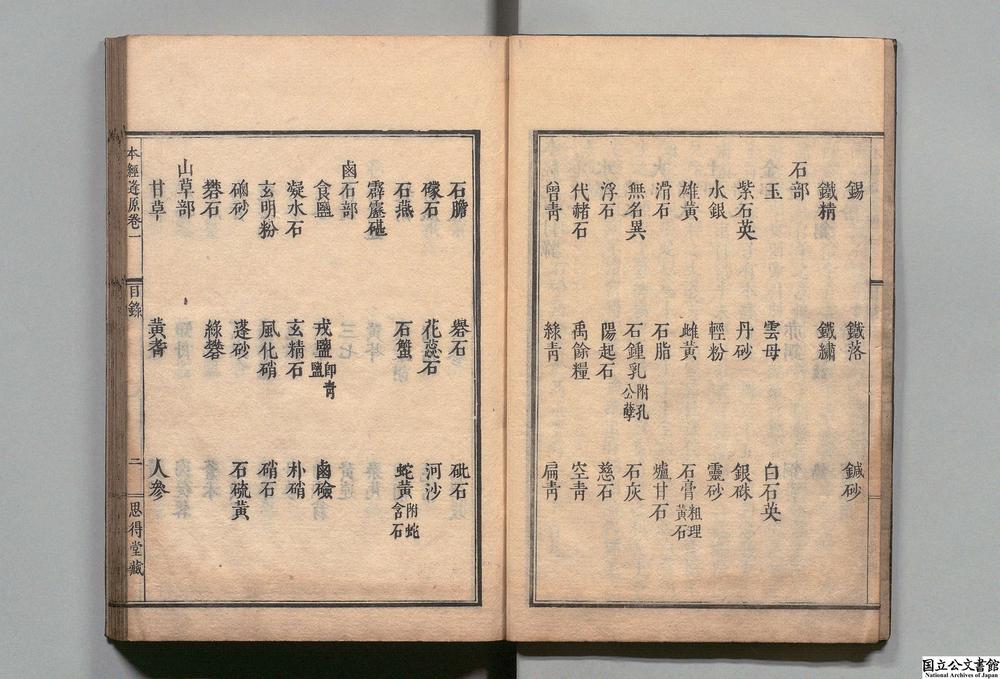 錫　鐵落　鍼砂
鐵精　鐵繡
石部
玉　雲母　白石英
紫石英　丹砂　銀硃
水銀　輕粉　靈砂
雄黃　雌黃　石膏粗理黃石
滑石　石脂　爐甘石
無名異　石鍾乳附孔公孽　石灰
浮石　陽起石　慈石
代赭石　禹餘糧　空青
曾青　綠青　扁青
石膽　礜石　砒石
礞石　花蕊石　河沙
石燕　石蟹　蛇黃附蛇含石
霹靂碪
鹵石部
食鹽　戎鹽卽青鹽　鹵鹼
凝水石　玄精石　朴硝
玄明粉　風化硝　硝石
硇砂　蓬砂　石硫黃
礬石　綠礬
山草部
甘草　黃耆　人參
本經逢原卷一　目錄　二　思得堂藏
国立公文書館
National Archives of Japan